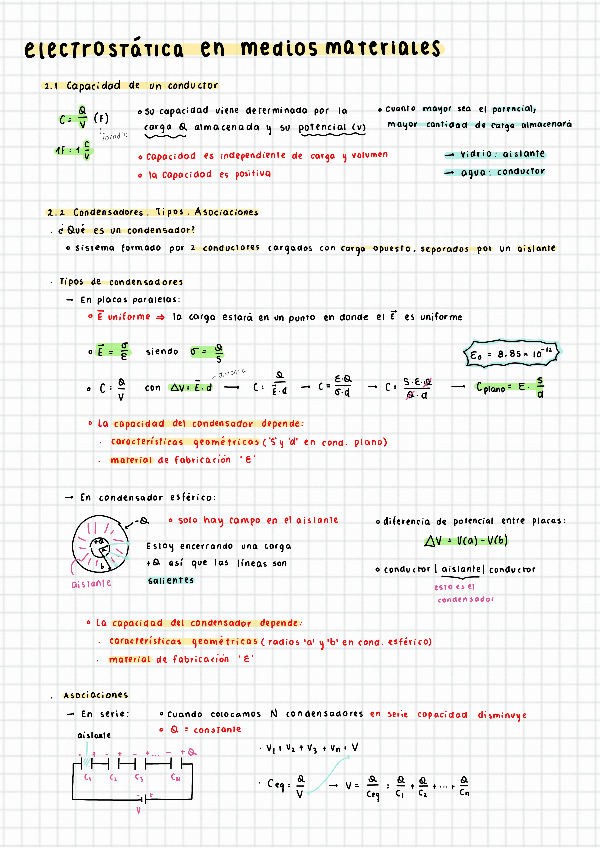 electrostática en medios materiales
2.1 Capacidad de un conductor
C = Q/V (F)
faradio
1F = 1 C/V
• Su capacidad viene determinada por la
carga Q almacenada y su potencial (V)
• Capacidad es independiente de carga y volumen
• la capacidad es positiva
• Cuanto mayor sea el potencial,
mayor cantidad de carga almacenará
→ vidrio: aislante
→ agua: conductor
2.2 Condensadores. Tipos. Asociaciones
. ¿Qué es un condensador?
• Sistema formado por 2 conductores cargados con carga opuesta, separados por un aislante
. Tipos de condensadores
→ En placas paralelas:
• E⃗ uniforme ⇒ la carga estará en un punto en donde el E⃗ es uniforme
• E⃗ = σ/ε siendo σ = Q/S
ε₀ = 8.85 × 10⁻¹²
• C = Q/V con ΔV = E⃗ · d → C = Q/(E⃗ · d) → C = (ε · Q)/(σ · d) → C = (S · ε · Q)/(Q · d) → Cplano = ε · S/d
distancia
• La capacidad del condensador depende:
. características geométricas ('S' y 'd' en cond. plano)
. material de fabricación 'ε'
→ En condensador esférico:
-Q
+Q
a
b
aislante
• solo hay campo en el aislante
Estoy encerrando una carga
+Q así que las líneas son
salientes
• diferencia de potencial entre placas:
ΔV = V(a) - V(b)
• conductor | aislante | conductor
esto es el
condensador
• La capacidad del condensador depende:
. características geométricas (radios 'a' y 'b' en cond. esférico)
. material de fabricación 'ε'
. Asociaciones
→ En serie:
• Cuando colocamos N condensadores en serie capacidad disminuye
• Q = constante
aislante
+ - + - + - ... - +Q
C₁ C₂ C₃ CN
- +
V
· V₁ + V₂ + V₃ + Vn = V
· Ceq = Q/V → V = Q/Ceq = Q/C₁ + Q/C₂ + ... + Q/Cn